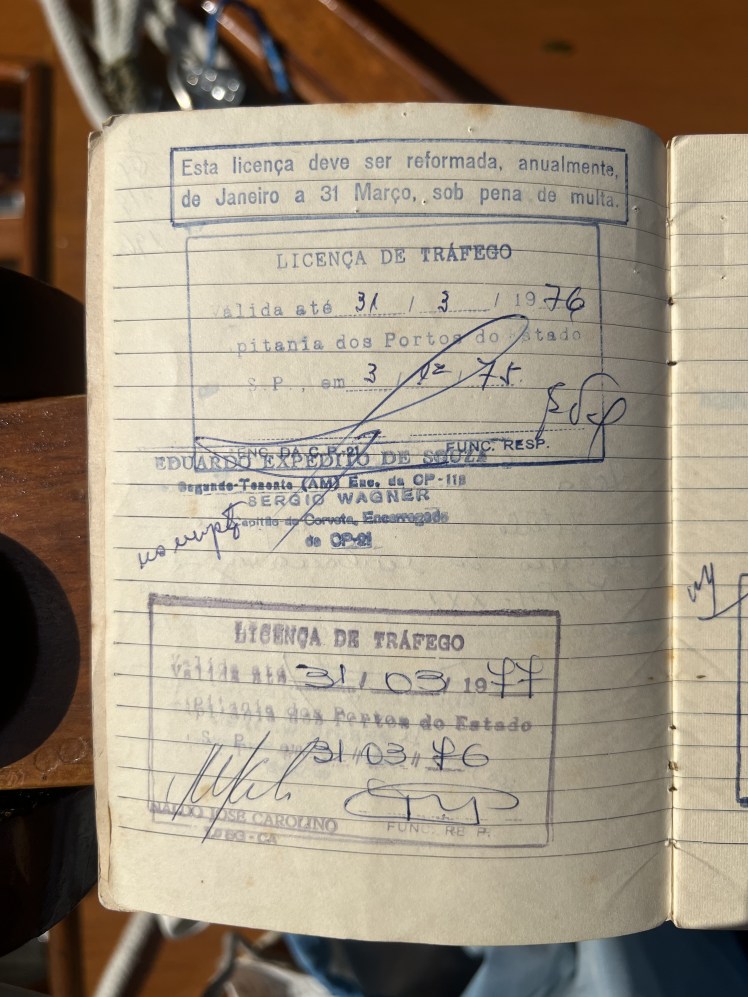 Esta licença deve ser reformada, anualmente,
de Janeiro a 31 Março, sob pena de multa.
LICENÇA DE TRÁFEGO
Válida até 31 / 3 / 1976
pitania dos Portos do Estado
S.P., em 3 / 12 / 75.
ENC. DA C.P.21 FUNC. RESP.
EDUARDO EXPEDITO DE SOUZA
Segundo-Tenente (AM) Enc. da CP-11
SERGIO WAGNER
Capitão de Corveta, Encarregado
da CP-21
LICENÇA DE TRÁFEGO
Válida até 31 / 03 / 1977
pitania dos Portos do Estado
S. P. em 31 / 03 / 76
NALDO JOSE CAROLINO
FUNC. RESP.